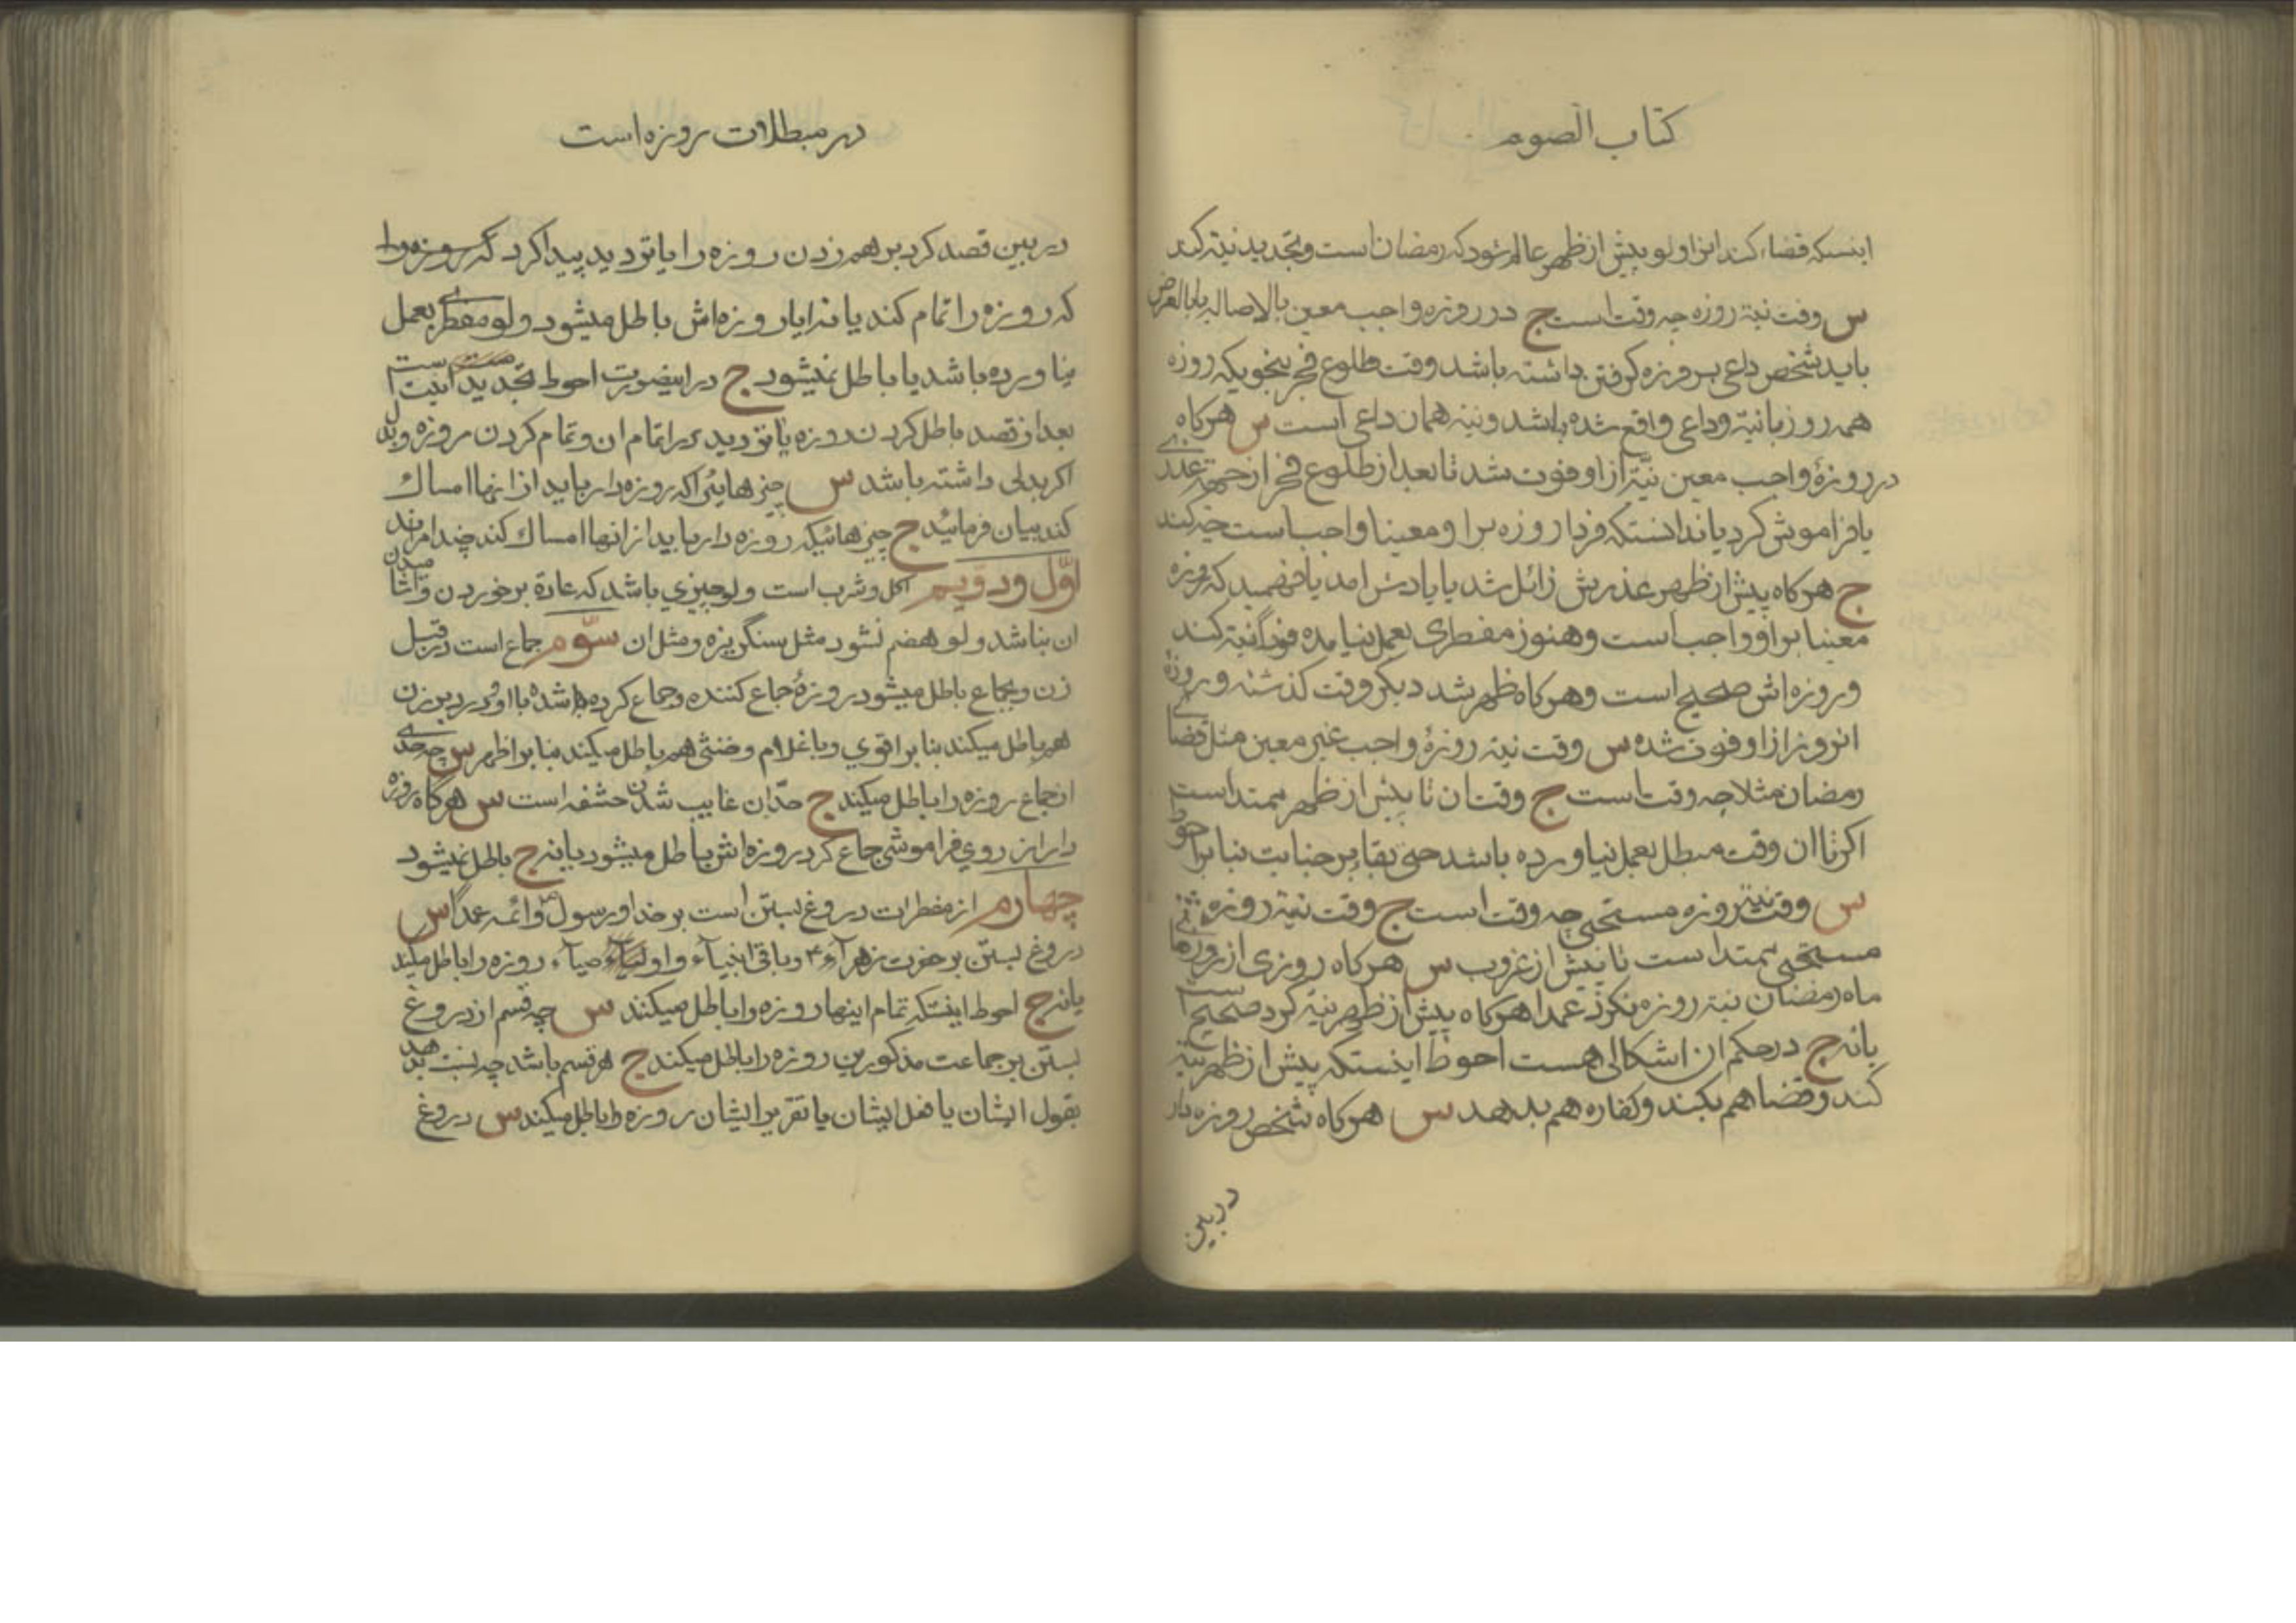 کتاب الصوم
اینستکه قضاء کند انرا ولو پیش از ظهر عالم شود که رمضان است و تجدید نیة کند
س وقت نیة روزه چه وقت است ج در روزه واجب معین بالاصاله یا بالعرض
باید شخص داعی بروزه کرفتن داشته باشد وقت طلوع فجر بنحویکه روزه
همه روز بانیة و داعی واقع شده باشد و نیة همان داعی است س هرکاه
در روزهٔ واجب معین نیّة از او فوت شد تا بعد از طلوع فجر از جهة عذری
یا فراموش کرد یا ندانستکه فردا روزه بر او معینا واجب است چه کند
ج هرکاه پیش از ظهر عذرش زائل شد یا یادش امد یا فهمید که روزه
معینا بر او واجب است و هنوز مفطری بعمل نیامده فوراً نیة کند
و روزه اش صحیح است و هرکاه ظهر شد دیکر وقت کذشته و روزهٔ
انروز از او فوت شده س وقت نیة روزهٔ واجب غیر معین مثل قضای
رمضان مثلا چه وقت است ج وقت ان تا پیش از ظهر ممتد است
اکر تا ان وقت مبطل بعمل نیاورده باشد حتی بقاء بر جنابت بنا بر احوط
س وقت نیة روزه مستحبی چه وقت است ج وقت نیة روزه
مستحبی ممتد است تا پیش از غروب س هرکاه روزی از روزهای
ماه رمضان نیة روزه نکرد عمدا هرکاه پیش از ظهر نیة کرد صحیح است
یا نه ج در حکم ان اشکالی هست احوط اینستکه پیش از ظهر نیة
کند و قضا هم بکند و کفاره هم بدهد س هرکاه شخص روزه دار
در بین
در مبطلات روزه است
در بین قصد کرد بر هم زدن روزه را یا تردید پیدا کرد که روزه را
که روزه را تمام کند یا نه ایا روزه اش باطل میشود ولو مفطری بعمل
نیاورده باشد یا باطل نمیشود ج در اینصورت احوط تجدید نیت است
بعد از قصد باطل کردن روزه یا تردید در اتمام ان و تمام کردن روزه و بدل
اکر بدلی داشته باشد س چیزهائیرا که روزه دار باید از انها امساک
کند بیان فرمائید ج چیزهائیکه روزه دار باید از انها امساک کند چند امرند
اوّل و دویم اکل و شرب است ولو چیزی باشد که عادة بر خوردن و اشامیدن
ان نباشد ولو هضم نشود مثل سنکریزه و مثل ان سوّم جماع است در قبل
زن و بجماع باطل میشود روزهٔ جماع کننده و جماع کرده شده با او و در دبر زن
هم باطل میکند بنا بر اقوی و با غلام و خنثی هم باطل میکند بنا بر اظهر س چه حدی
از جماع روزه را باطل میکند ج حدّ ان غایب شدن حشفه است س هرکاه روزه
دار از روی فراموشی جماع کرد روزه اش باطل میشود یا نه ج باطل نمیشود
چهارم از مفطرات دروغ بستن است بر خدا و رسول ص و ائمه عمداً س
دروغ بستن بر حضرت زهراء ع و باقی انبیآء و اوصیآء روزه را باطل میکند
یا نه ج احوط اینستکه تمام اینها روزه را باطل میکنند س چه قسم از دروغ
بستن بر جماعت مذکورین روزه را باطل میکند ج هر قسم باشد چه نسبت بدهد
بقول ایشان یا فعل ایشان یا تقریر ایشان روزه را باطل میکند س دروغ